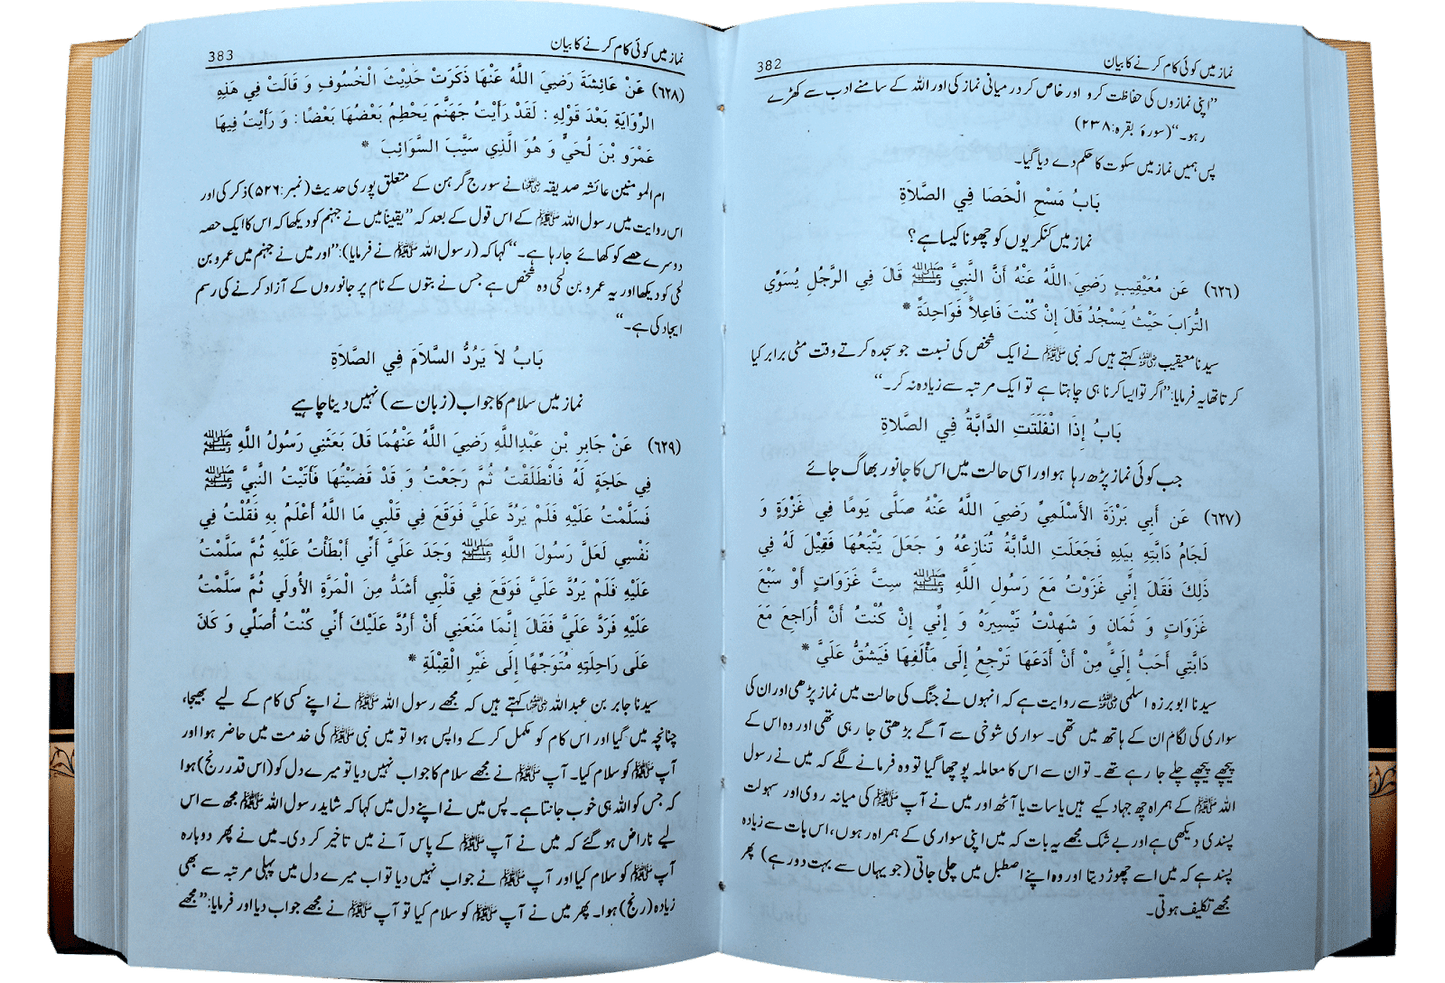 نماز میں کوئی کام کرنے کا بیان
382
"اپنی نمازوں کی حفاظت کرو اور خاص کر درمیانی نماز کی اور اللہ کے سامنے ادب سے کھڑے
رہو۔" (سورۂ بقرہ:۲۳۸)
پس ہمیں نماز میں سکوت کا حکم دے دیا گیا۔
بَابُ مَسْحِ الْحَصَا فِي الصَّلَاةِ
نماز میں کنکریوں کو چھونا کیسا ہے؟
(۶۲۶) عَن مُعَيْقِيبٍ رَضِيَ اللَّهُ عَنْهُ أَنَّ النَّبِيَّ ﷺ قَالَ فِي الرَّجُلِ يُسَوِّي
التُّرَابَ حَيْثُ يَسْجُدُ قَالَ إِنْ كُنْتَ فَاعِلاً فَوَاحِدَةً *
سیدنا معیقیب ؓ کہتے ہیں کہ نبی ﷺ نے ایک شخص کی نسبت جو سجدہ کرتے وقت مٹی برابر کیا
کرتا تھا یہ فرمایا: "اگر تو ایسا کرنا ہی چاہتا ہے تو ایک مرتبہ سے زیادہ نہ کر۔"
بَابُ إِذَا انْفَلَتَتِ الدَّابَّةُ فِي الصَّلَاةِ
جب کوئی نماز پڑھ رہا ہو اور اسی حالت میں اس کا جانور بھاگ جائے
(۶۲۷) عَن أَبِي بَرْزَةَ الأَسْلَمِيِّ رَضِيَ اللَّهُ عَنْهُ صَلَّى يَوْمًا فِي غَزْوَةٍ وَ
لَجَامُ دَابَّتِهِ بِيَدِهِ فَجَعَلَتِ الدَّابَّةُ تُنَازِعُهُ وَ جَعَلَ يَتْبَعُهَا فَقِيْلَ لَهُ فِي
ذَلِكَ فَقَالَ إِنِّي غَزَوْتُ مَعَ رَسُولِ اللَّهِ ﷺ سِتَّ غَزَوَاتٍ أَوْ سَبْعَ
غَزَوَاتٍ وَ ثَمَانٍ وَ شَهِدْتُ تَيْسِيرَهُ وَ إِنِّي إِنْ كُنْتُ أَنْ أُرَاجِعَ مَعَ
دَابَّتِي أَحَبُّ إِلَيَّ مِنْ أَنْ أَدَعَهَا تَرْجِعُ إِلَى مَأْلَفِهَا فَيَشُقُّ عَلَيَّ *
سیدنا ابوبرزہ اسلمی ؓ سے روایت ہے کہ انہوں نے جنگ کی حالت میں نماز پڑھی اور ان کی
سواری کی لگام ان کے ہاتھ میں تھی۔ سواری شوخی سے آگے بڑھتی جا رہی تھی اور وہ اس کے
پیچھے پیچھے چلے جا رہے تھے۔ تو ان سے اس کا معاملہ پوچھا گیا تو وہ فرمانے لگے کہ میں نے رسول
اللہ ﷺ کے ہمراہ چھ جہاد کیے ہیں یا سات یا آٹھ اور میں نے آپ ﷺ کی میانہ روی اور سہولت
پسندی دیکھی ہے اور بے شک مجھے یہ بات کہ میں اپنی سواری کے ہمراہ رہوں، اس بات سے زیادہ
پسند ہے کہ میں اسے چھوڑ دیتا اور وہ اپنے اصطبل میں چلی جاتی (جو یہاں سے بہت دور ہے) پھر
مجھے تکلیف ہوتی۔
نماز میں کوئی کام کرنے کا بیان
383
(۶۲۸) عَنْ عَائِشَةَ رَضِيَ اللَّهُ عَنْهَا ذَكَرَتْ حَدِيْثَ الْخُسُوفِ وَ قَالَتْ فِي هَذِهِ
الرِّوَايَةِ بَعْدَ قَوْلِهِ : لَقَدْ رَأَيْتُ جَهَنَّمَ يَحْطِمُ بَعْضُهَا بَعْضًا : وَ رَأَيْتُ فِيهَا
عَمْرَو بْنَ لُحَيٍّ وَ هُوَ الَّذِي سَيَّبَ السَّوَائِبَ *
ام المومنین عائشہ صدیقہ ؓ نے سورج گرہن کے متعلق پوری حدیث (نمبر:۵۲۶) ذکر کی اور
اس روایت میں رسول اللہ ﷺ کے اس قول کے بعد کہ "یقیناً میں نے جہنم کو دیکھا کہ اس کا ایک حصہ
دوسرے حصے کو کھائے جا رہا ہے۔" کہا کہ (رسول اللہ ﷺ نے فرمایا): "اور میں نے جہنم میں عمرو بن
لحی کو دیکھا اور یہ عمرو بن لحی وہ شخص ہے جس نے بتوں کے نام پر جانوروں کے آزاد کرنے کی رسم
ایجاد کی ہے۔"
بَابُ لاَ يَرُدُّ السَّلاَمَ فِي الصَّلاَةِ
نماز میں سلام کا جواب (زبان سے) نہیں دینا چاہیے
(۶۲۹) عَنْ جَابِرِ بْنِ عَبْدِاللَّهِ رَضِيَ اللَّهُ عَنْهُمَا قَالَ بَعَثَنِي رَسُولُ اللَّهِ ﷺ
فِي حَاجَةٍ لَهُ فَانْطَلَقْتُ ثُمَّ رَجَعْتُ وَ قَدْ قَضَيْتُهَا فَأَتَيْتُ النَّبِيَّ ﷺ
فَسَلَّمْتُ عَلَيْهِ فَلَمْ يَرُدَّ عَلَيَّ فَوَقَعَ فِي قَلْبِي مَا اللَّهُ أَعْلَمُ بِهِ فَقُلْتُ فِي
نَفْسِي لَعَلَّ رَسُولَ اللَّهِ ﷺ وَجَدَ عَلَيَّ أَنِّي أَبْطَأْتُ عَلَيْهِ ثُمَّ سَلَّمْتُ
عَلَيْهِ فَلَمْ يَرُدَّ عَلَيَّ فَوَقَعَ فِي قَلْبِي أَشَدُّ مِنَ الْمَرَّةِ الأُولَي ثُمَّ سَلَّمْتُ
عَلَيْهِ فَرَدَّ عَلَيَّ فَقَالَ إِنَّمَا مَنَعَنِي أَنْ أَرُدَّ عَلَيْكَ أَنِّي كُنْتُ أُصَلِّي وَ كَانَ
عَلَى رَاحِلَتِهِ مُتَوَجِّهًا إِلَى غَيْرِ الْقِبْلَةِ *
سیدنا جابر بن عبداللہ ؓ کہتے ہیں کہ مجھے رسول اللہ ﷺ نے اپنے کسی کام کے لیے بھیجا،
چنانچہ میں گیا اور اس کام کو مکمل کر کے واپس ہوا تو میں نبی ﷺ کی خدمت میں حاضر ہوا اور
آپ ﷺ کو سلام کیا۔ آپ ﷺ نے مجھے سلام کا جواب نہیں دیا تو میرے دل کو (اس قدر رنج) ہوا
کہ جس کو اللہ ہی خوب جانتا ہے۔ پس میں نے اپنے دل میں کہا کہ شاید رسول اللہ ﷺ مجھ سے اس
لیے ناراض ہو گئے کہ میں نے آپ ﷺ کے پاس آنے میں تاخیر کر دی۔ میں نے پھر دوبارہ
آپ ﷺ کو سلام کیا اور آپ ﷺ نے جواب نہیں دیا تو اب میرے دل میں پہلی مرتبہ سے بھی
زیادہ (رنج) ہوا۔ پھر میں نے آپ ﷺ کو سلام کیا تو آپ ﷺ نے مجھے جواب دیا اور فرمایا: "مجھے